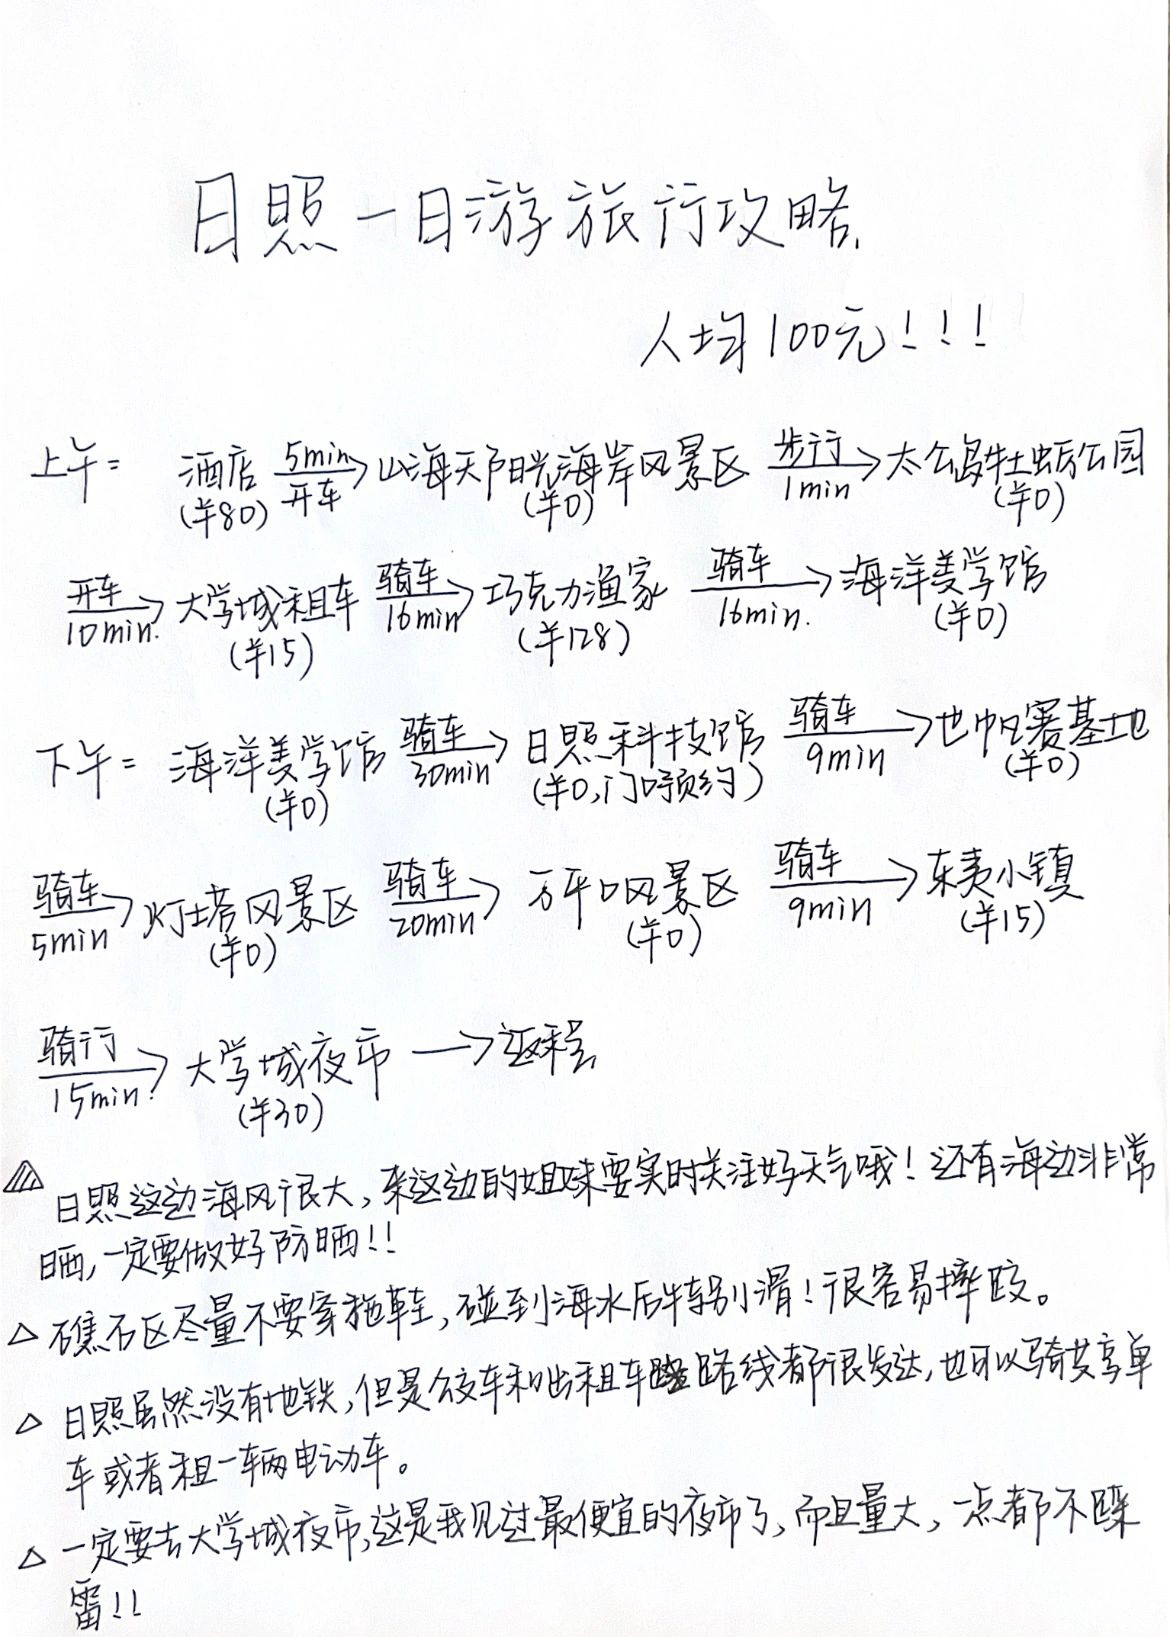 日照一日游旅行攻略
人均100元!!!
上午: 酒店 5min 开车 → 山海天阳光海岸风景区 步行 1min → 太公岛牡蛎公园
(¥80) (¥0) (¥0)
开车 10min. → 大学城租车 骑车 16min → 巧克力渔家 骑车 16min. → 海洋美学馆
(¥15) (¥128) (¥0)
下午: 海洋美学馆 骑车 30min → 日照科技馆 骑车 9min → 世帆赛基地
(¥0) (¥0,门口预约) (¥0)
骑车 5min → 灯塔风景区 骑车 20min → 万平口风景区 骑车 9min → 东夷小镇
(¥0) (¥0) (¥15)
骑行 15min. → 大学城夜市 → 返程
(¥30)
△ 日照这边海风很大,来这边的姐妹要实时关注好天气哦!还有海边非常
晒,一定要做好防晒!!
△ 礁石区尽量不要穿拖鞋,碰到海水后特别滑!很容易摔跤。
△ 日照虽然没有地铁,但是公交车和出租车路线都很发达,也可以骑共享单
车或者租一辆电动车。
△ 一定要去大学城夜市,这是我见过最便宜的夜市了,而且量大,一点都不踩
雷!!